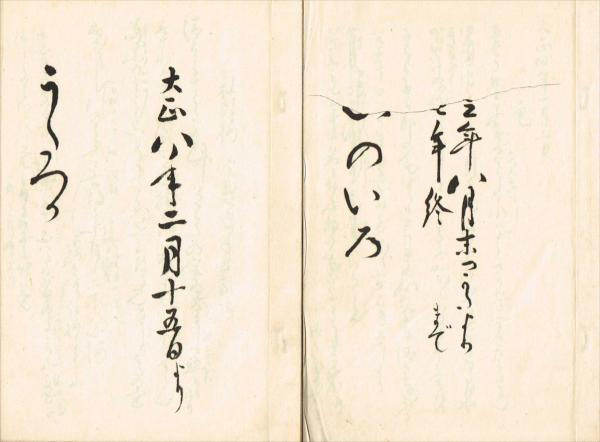 三年八月末つころより
七年終まで
いのいろ
大正八年二月十五日より
うつろ